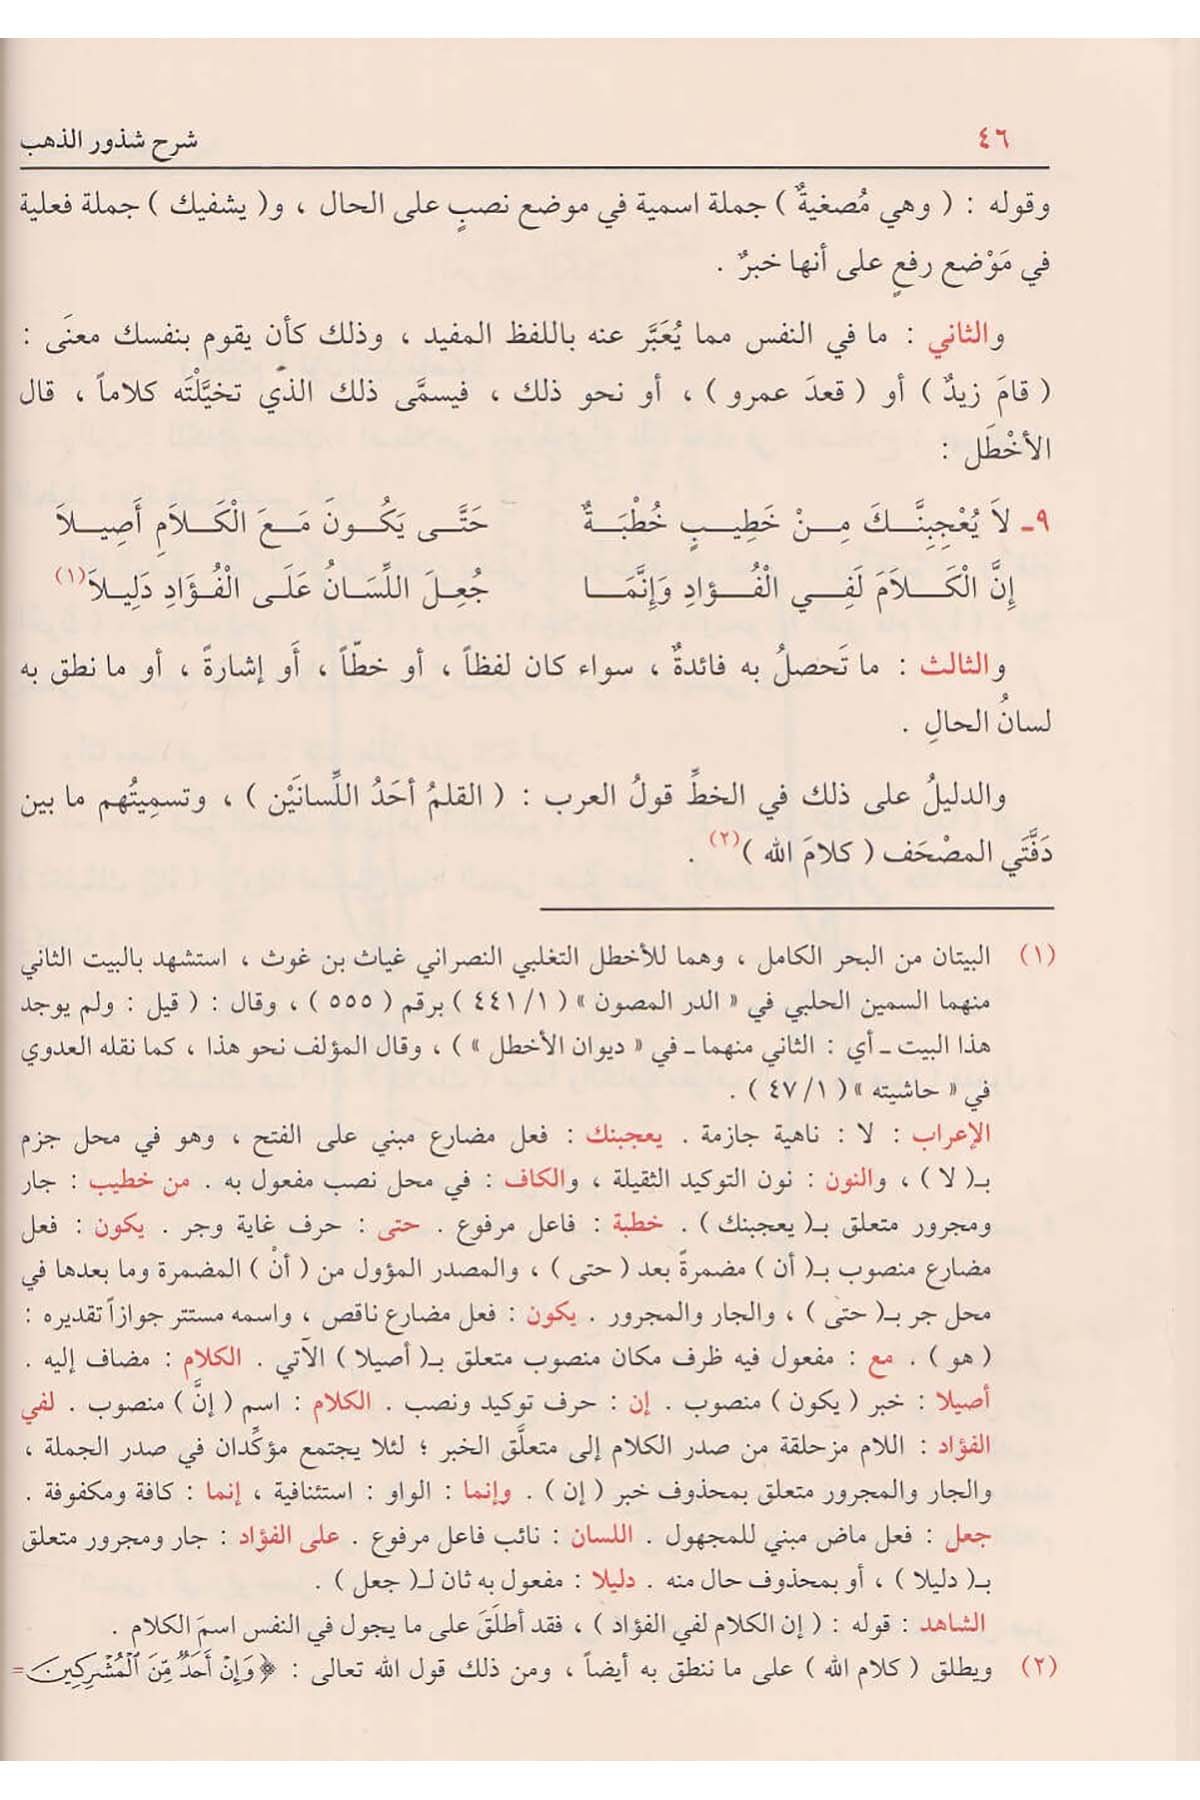 ٤٦
شرح شذور الذهب
وقوله : ( وهي مُصغيةٌ ) جملة اسمية في موضع نصبٍ على الحال ، و( يشفيك ) جملة فعلية
في مَوْضع رفعٍ على أنها خبرٌ .
والثاني : ما في النفس مما يُعَبَّر عنه باللفظ المفيد ، وذلك كأن يقوم بنفسك معنَى :
( قامَ زيدٌ ) أو ( قعدَ عمرو ) ، أو نحو ذلك ، فيسمَّى ذلك الذي تخيَّلْتَه كلاماً ، قال
الأخْطَل :
٩ـ لاَ يُعْجِبِنَّـكَ مِـنْ خَطِيبٍ خُطْبَـةٌ حَتَّـى يَكُـونَ مَـعَ الْكَـلاَمِ أَصِيـلاَ
إِنَّ الْكَـلاَمَ لَفِـي الْفُـؤَادِ وَإِنَّمَـا جُعِلَ اللِّسَانُ عَلَى الْفُؤَادِ دَلِيلاَ(١)
والثالث : ما تَحصلُ به فائدةٌ ، سواء كان لفظاً ، أو خطّاً ، أَو إشارةً ، أو ما نطق به
لسانُ الحالِ .
والدليلُ على ذلك في الخطِّ قولُ العرب : ( القلمُ أحَدُ اللِّسانَيْن ) ، وتسمِيتُهم ما بين
دَفَّتَي المصْحَف ( كلامَ الله )(٢) .
(١) البيتان من البحر الكامل ، وهما للأخطل التغلبي النصراني غياث بن غوث ، استشهد بالبيت الثاني
منهما السمين الحلبي في « الدر المصون » ( ٤٤١/١ ) برقم ( ٥٥٥ ) ، وقال : ( قيل : ولم يوجد
هذا البيت ـ أي : الثاني منهما ـ في « ديوان الأخطل » ) ، وقال المؤلف نحو هذا ، كما نقله العدوي
في « حاشيته » ( ٤٧/١ ) .
الإعراب : لا : ناهية جازمة . يعجبنك : فعل مضارع مبني على الفتح ، وهو في محل جزم
بـ( لا ) ، والنون : نون التوكيد الثقيلة ، والكاف : في محل نصب مفعول به . من خطيب : جار
ومجرور متعلق بـ( يعجبنك ) . خطبة : فاعل مرفوع . حتى : حرف غاية وجر . يكون : فعل
مضارع منصوب بـ( أن ) مضمرةً بعد ( حتى ) ، والمصدر المؤول من ( أنْ ) المضمرة وما بعدها في
محل جر بـ( حتى ) ، والجار والمجرور . يكون : فعل مضارع ناقص ، واسمه مستتر جوازاً تقديره :
( هو ) . مع : مفعول فيه ظرف مكان منصوب متعلق بـ( أصيلا ) الآتي . الكلام : مضاف إليه .
أصيلا : خبر ( يكون ) منصوب . إن : حرف توكيد ونصب . الكلام : اسم ( إنَّ ) منصوب . لفي
الفؤاد : اللام مزحلقة من صدر الكلام إلى متعلَّق الخبر ؛ لئلا يجتمع مؤكِّدان في صدر الجملة ،
والجار والمجرور متعلق بمحذوف خبر ( إن ) . وإنما : الواو : استئنافية ، إنما : كافة ومكفوفة .
جعل : فعل ماض مبني للمجهول . اللسان : نائب فاعل مرفوع . على الفؤاد : جار ومجرور متعلق
بـ( دليلا ) ، أو بمحذوف حال منه . دليلا : مفعول به ثان لـ( جعل ) .
الشاهد : قوله : ( إن الكلام لفي الفؤاد ) ، فقد أطلَقَ على ما يجول في النفس اسمَ الكلام .
(٢) ويطلق ( كلام الله ) على ما ننطق به أيضاً ، ومن ذلك قول الله تعالى : ﴿ وَإِنْ أَحَدٌ مِّنَ ٱلْمُشْرِكِينَ =